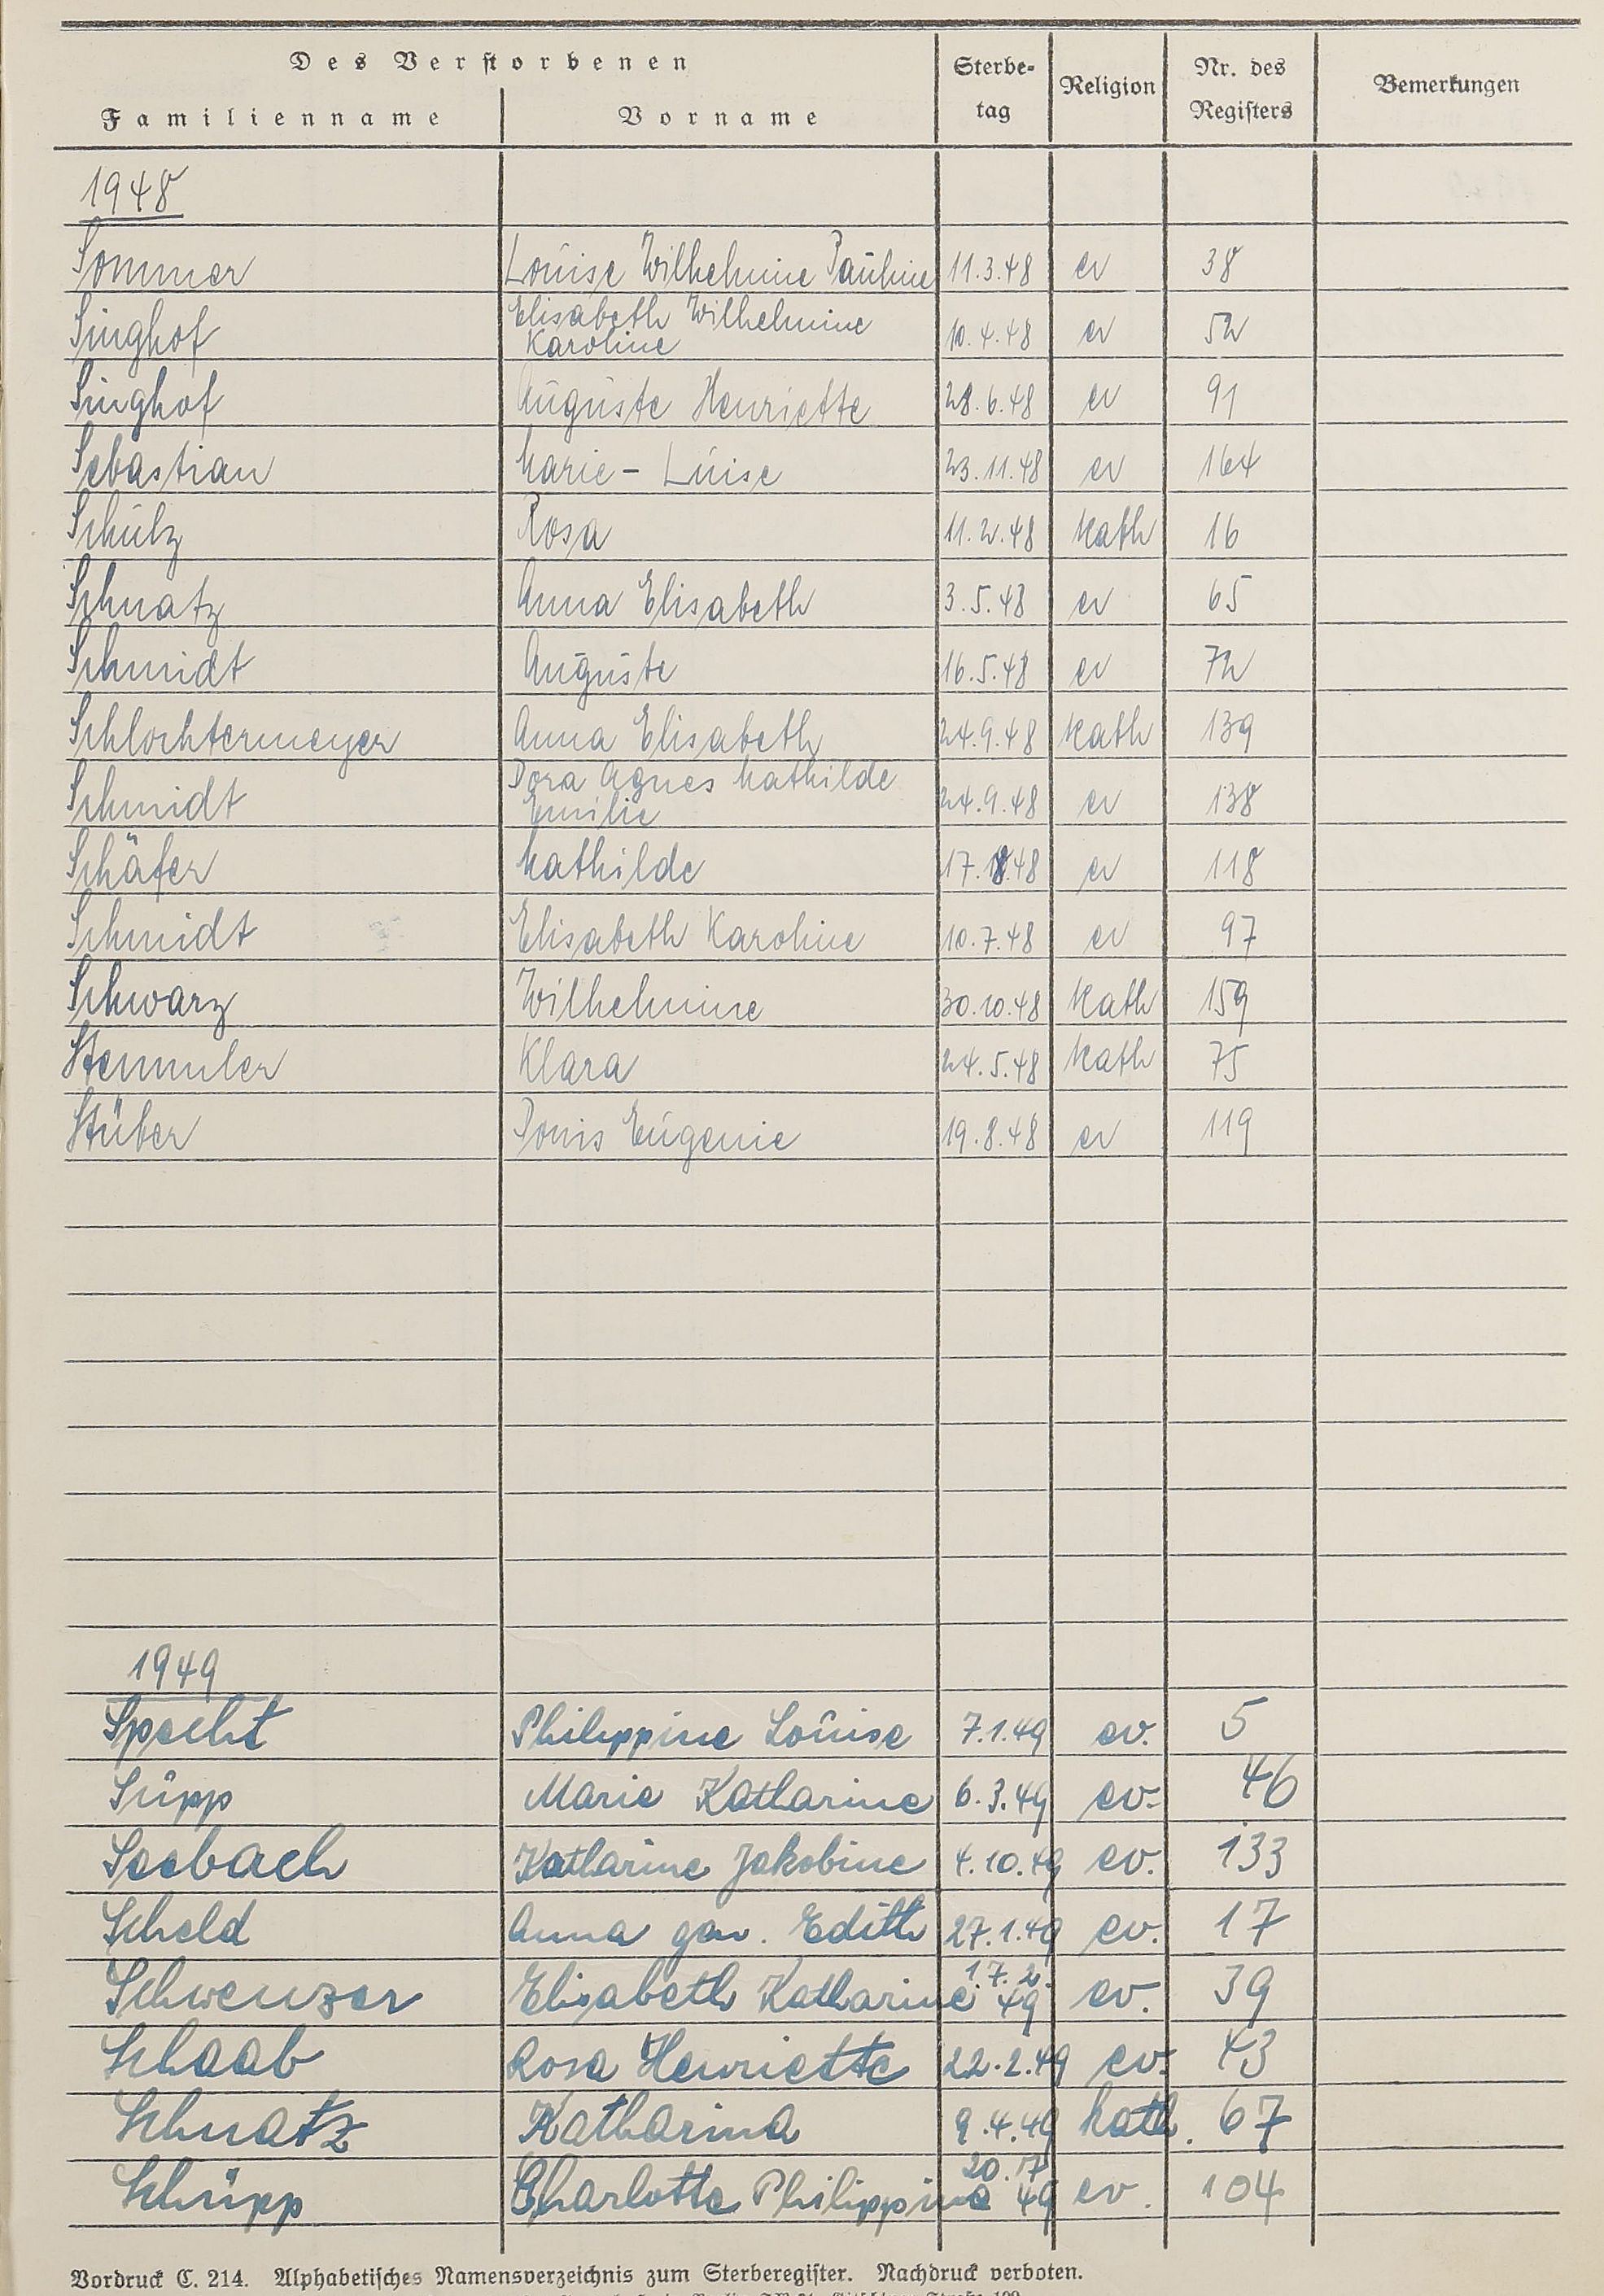 Des Verstorbenen
Familienname Vorname Sterbe-tag Religion Nr. des Registers Bemerkungen
1948
Sommer Louise Wilhelmine Pauline 11.3.48 ev 38
Singhof Elisabeth Wilhelmine Karoline 10.4.48 ev 52
Singhof Auguste Henriette 28.6.48 ev 91
Sebastian Marie - Luise 23.11.48 ev 164
Schulz Rosa 11.2.48 kath 16
Schnatz Anna Elisabeth 3.5.48 ev 65
Schmidt Auguste 16.5.48 ev 72
Schlochtermeyer Anna Elisabeth 24.9.48 kath 139
Schmidt Dora Agnes Mathilde Emilie 24.9.48 ev 138
Schäfer Mathilde 17.8.48 ev 118
Schmidt Elisabeth Karoline 10.7.48 ev 97
Schwarz Wilhelmine 30.10.48 kath 159
Stemmler Klara 24.5.48 kath 75
Stüber Eugenie 19.8.48 ev 119
1949
Specht Philippine Louise 7.1.49 ev. 5
Supp Marie Katharine 6.3.49 ev. 46
Seebach Katharine Jakobine 4.10.49 ev. 133
Scheld Anna gen. Edith 27.1.49 ev. 17
Schwenzer Elisabeth Katharine 17.2.49 ev. 39
Schaab Rosa Henriette 22.2.49 ev. 43
Schnatz Katharina 9.4.49 kath. 67
Schüpp Charlotte Philippine 20.7.49 ev. 104
Vordruck C. 214. Alphabetisches Namensverzeichnis zum Sterberegister. Nachdruck verboten.